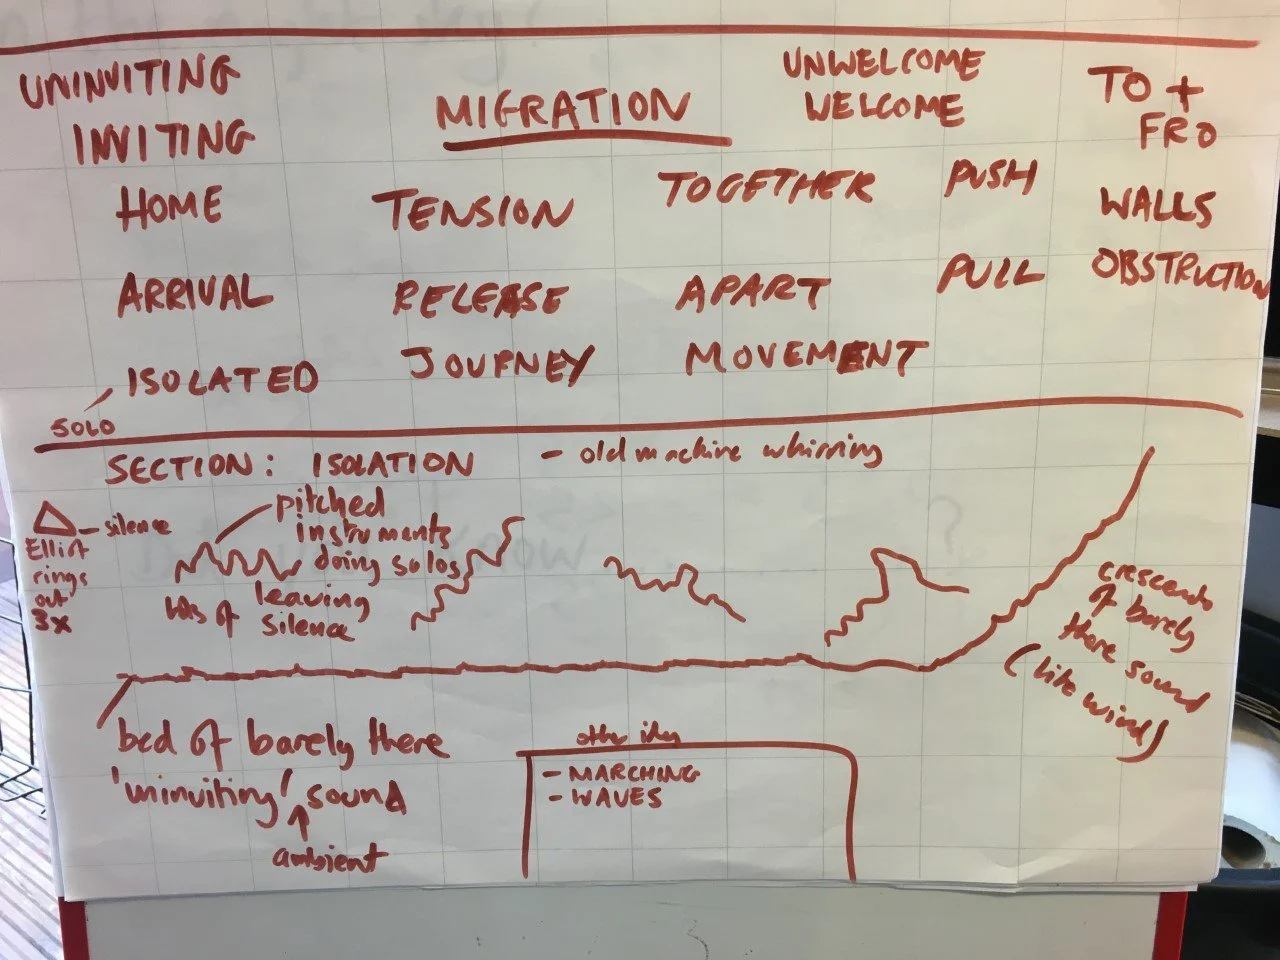 UNINVITING
INVITING
MIGRATION
UNWELCOME
WELCOME
TO +
FRO
HOME
TENSION
TOGETHER
PUSH
WALLS
ARRIVAL
RELEASE
APART
PULL
OBSTRUCTION
ISOLATED
JOURNEY
MOVEMENT
SOLO
SECTION: ISOLATION - old machine whirring
- silence
rings
out
3x
pitched
instruments
doing solos
leaving
of
silence
crescendo
of barely
there sound
(like wind)
bed of barely there
'uninviting' sound
ambient
other
- MARCHING
- WAVES